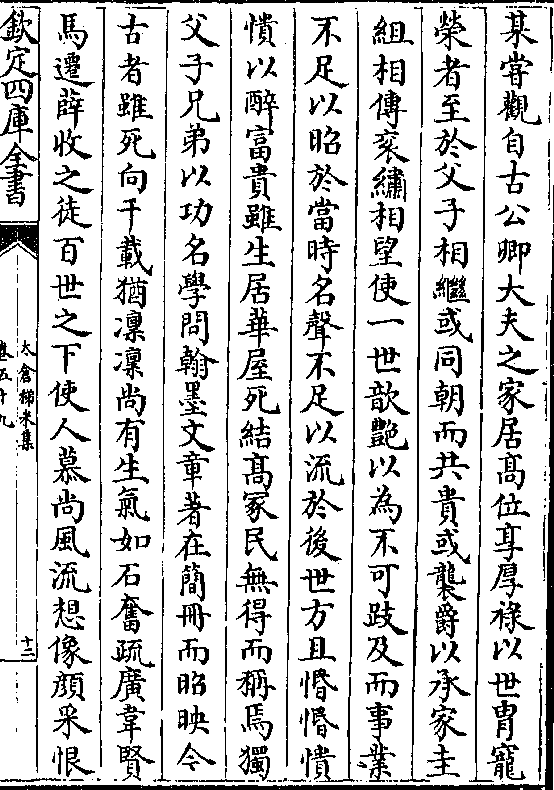 某嘗觀自古公卿大夫之家居髙位享厚禄以世胄寵
榮者至於父子相繼或同朝而共貴或襲爵以承家圭
組相傳衮繡相望使一世歆艷以為不可跂及而事業
不足以昭於當時名聲不足以流於後世方且惛惛憒
憒以醉富貴雖生居華屋死結髙冢民無得而稱焉獨
父子兄弟以功名學問翰墨文章著在簡冊而昭映今
古者雖死向千載猶凛凛尚有生氣如石奮疏廣韋賢
馬遷薛收之徒百世之下使人慕尚風流想像顔采恨
欽定四庫全書
太倉稊米集
卷五十九
十二